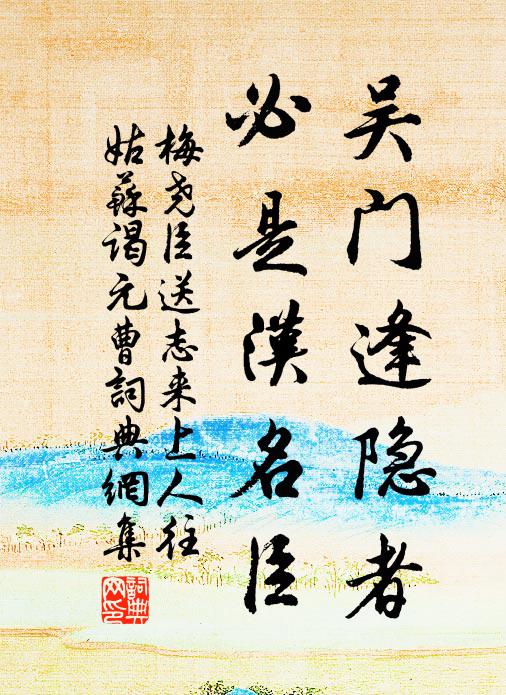 吴门逢隐者
必是漢名臣
梅尧臣送志来上人往
姑蘇谒元曹詞典網集
詞典網印